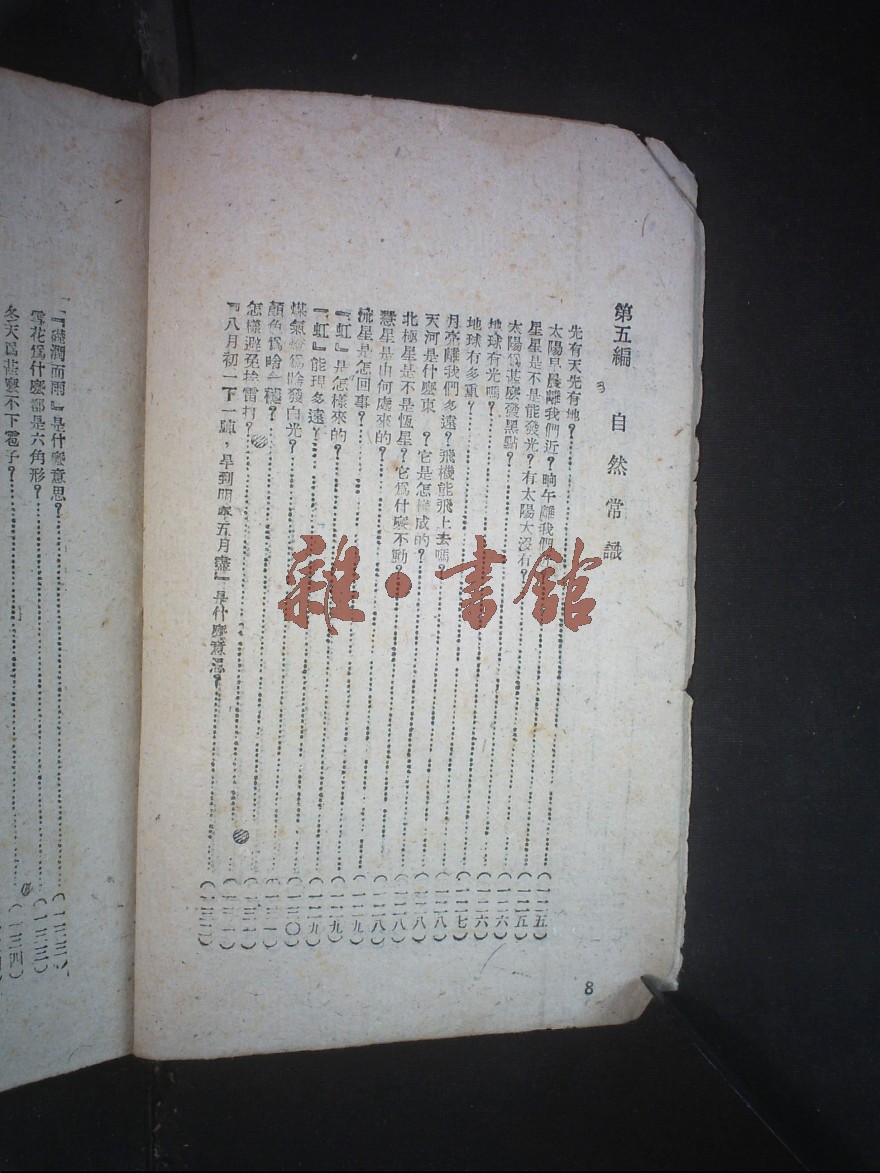 第五編　自然常識
先有天先有地？
太陽早晨離我們近？晌午離我們
星星是不是能發光？有太陽大沒有？（一二五）
太陽爲甚麽發黑點？（一二五）
地球有光嗎？（一二六）
地球有多重？（一二六）
月亮離我們多遠？飛機能飛上去嗎？（一二七）
天河是什麽東　？它是怎樣成的？（一二八）
北極星是不是恆星？它爲什麽不動？（一二八）
慧星是由何處來的？（一二八）
流星是怎回事？（一二八）
『虹』是怎樣來的？（一二九）
『虹』能現多遠？（一二九）
煤氣燈爲啥發白光？（一二九）
顏色爲啥一褪？（一三〇）
怎樣避免挨雷打？
『八月初一下一陣，旱到明年五月盡』是什麽意思？
8
『礎潤而雨』是什麽意思？
雪花爲什麽都是六角形？（一三三）
冬天爲甚麽不下雹子？（一三四）
雜·書館